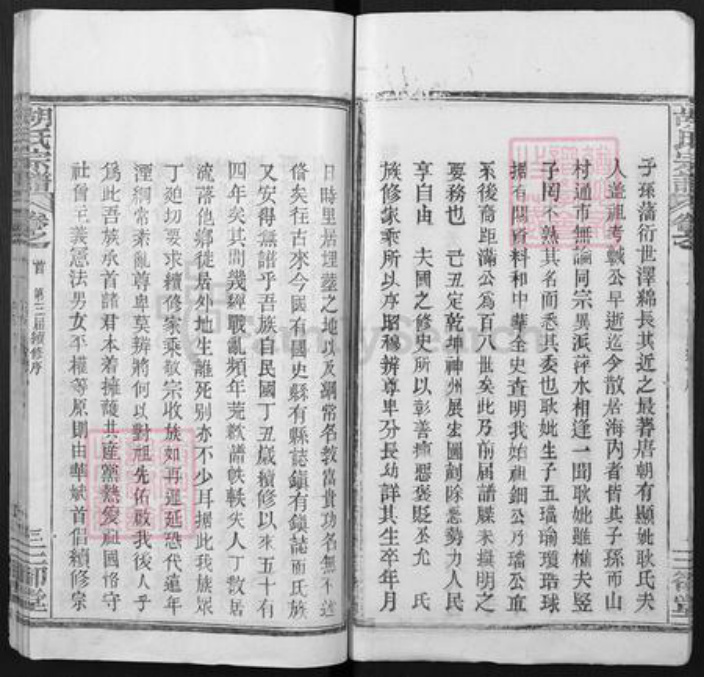 子孫蕃衍世澤綿長其近之最著唐朝有顯妣耿氏夫
人葢祖考戟公早逝迄今散居海內者皆其子孫而山
村通市無論同宗異派萍水相逢一聞耿妣雖樵夫竪
子罔不熟其名而悉其委也耿妣生子五璠瑜瓊珤球
據有關資料和中華全史查明我始祖鈿公乃璠公直
系後裔距滿公為百八世矣此乃前屆譜牒未擬明之
要務也　己丑定乾坤神州展宏圖剷除惡勢力人民
享自由　夫國之修史所以彰善癉惡褒貶丕允　氏
族修家乘所以序昭穆辨尊卑分長幼詳其生卒年月
日時里居埋塟之地以及綱常名教富貴功名無不述
備矣往古來今國有國史縣有縣誌鎮有鎮誌而氏族
又安得無譜乎吾族自民國丁丑歲續修以來五十有
四年矣其間幾經戰亂頻年荒歉譜帙軼失人丁散居
流落他鄉徙居外地生離死別亦不少耳據此我族眾
丁廹切要求續修家乘敬宗收族如再遲延恐代遠年
湮綱常紊亂尊卑莫辨將何以對祖先佑啟我後人乎
為此吾族承首諸君本着擁護共產黨熱愛祖國恪守
社會主義憲法男女平權等原則由華斌首倡續修宗
胡氏宗譜
卷之
首
第三屆續修序
胡氏宗譜
卷之
FamilySearch